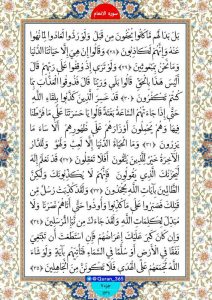 سورة الانعام
بَلْ بَدَا لَهُم مَّا كَانُوا يُخْفُونَ مِن قَبْلُ وَلَوْ رُدُّوا لَعَادُوا لِمَا نُهُوا
عَنْهُ وَإِنَّهُمْ لَكَاذِبُونَ (٢٨) وَقَالُوا إِنْ هِيَ إِلَّا حَيَاتُنَا الدُّنْيَا
وَمَا نَحْنُ بِمَبْعُوثِينَ (٢٩) وَلَوْ تَرَىٰ إِذْ وُقِفُوا عَلَىٰ رَبِّهِمْ قَالَ
أَلَيْسَ هَٰذَا بِالْحَقِّ قَالُوا بَلَىٰ وَرَبِّنَا قَالَ فَذُوقُوا الْعَذَابَ بِمَا
كُنتُمْ تَكْفُرُونَ (٣٠) قَدْ خَسِرَ الَّذِينَ كَذَّبُوا بِلِقَاءِ اللَّهِ
حَتَّىٰ إِذَا جَاءَتْهُمُ السَّاعَةُ بَغْتَةً قَالُوا يَا حَسْرَتَنَا عَلَىٰ مَا فَرَّطْنَا
فِيهَا وَهُمْ يَحْمِلُونَ أَوْزَارَهُمْ عَلَىٰ ظُهُورِهِمْ أَلَا سَاءَ مَا
يَزِرُونَ (٣١) وَمَا الْحَيَاةُ الدُّنْيَا إِلَّا لَعِبٌ وَلَهْوٌ وَلَلدَّارُ
الْآخِرَةُ خَيْرٌ لِّلَّذِينَ يَتَّقُونَ أَفَلَا تَعْقِلُونَ (٣٢) قَدْ نَعْلَمُ إِنَّهُ
لَيَحْزُنُكَ الَّذِي يَقُولُونَ فَإِنَّهُمْ لَا يُكَذِّبُونَكَ وَلَٰكِنَّ
الظَّالِمِينَ بِآيَاتِ اللَّهِ يَجْحَدُونَ (٣٣) وَلَقَدْ كُذِّبَتْ رُسُلٌ مِّن
قَبْلِكَ فَصَبَرُوا عَلَىٰ مَا كُذِّبُوا وَأُوذُوا حَتَّىٰ أَتَاهُمْ نَصْرُنَا وَلَا
مُبَدِّلَ لِكَلِمَاتِ اللَّهِ وَلَقَدْ جَاءَكَ مِن نَّبَإِ الْمُرْسَلِينَ (٣٤)
وَإِن كَانَ كَبُرَ عَلَيْكَ إِعْرَاضُهُمْ فَإِنِ اسْتَطَعْتَ أَن تَبْتَغِيَ
نَفَقًا فِي الْأَرْضِ أَوْ سُلَّمًا فِي السَّمَاءِ فَتَأْتِيَهُم بِآيَةٍ وَلَوْ شَاءَ
اللَّهُ لَجَمَعَهُمْ عَلَى الْهُدَىٰ فَلَا تَكُونَنَّ مِنَ الْجَاهِلِينَ (٣٥)
@Quran_365